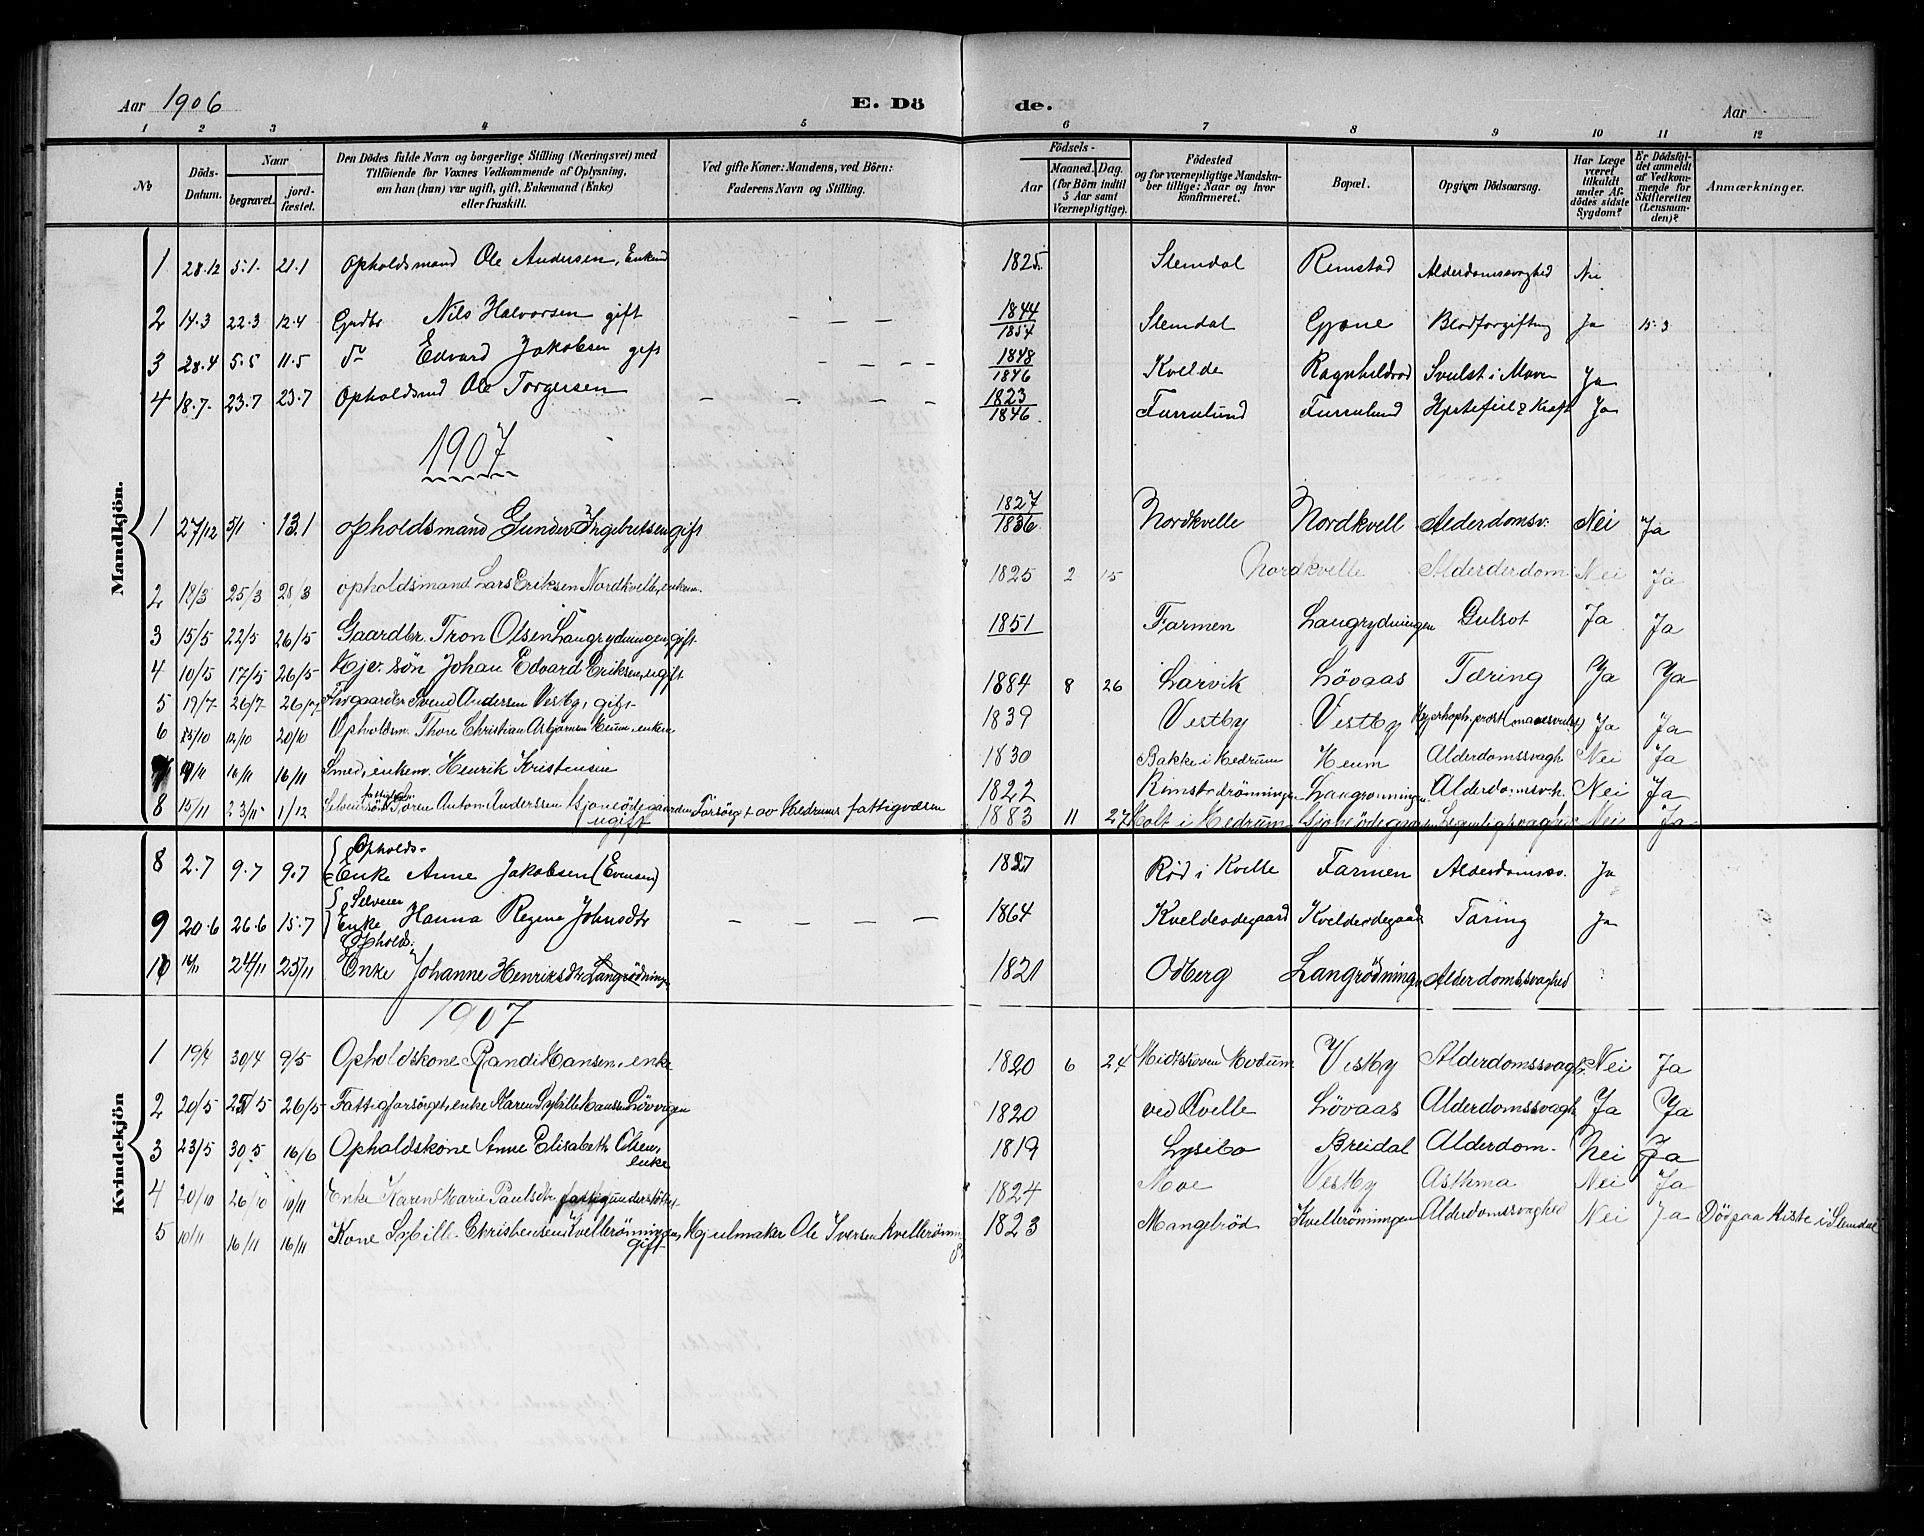 Aar 1906 E. Dö de. Aar
1 2 3 4 5 6 7 8 9 10 11 12
No
Döds-Datum.
Naar
begravet.
jord-fæstet.
Den Dödes fulde Navn og borgerlige Stilling (Næringsvei) med
Tilföiende for Voxnes Vedkommende af Oplysning,
om han (hun) var ugift, gift, Enkemand (Enke)
eller fraskilt.
Ved gifte Koner: Mandens, ved Börn:
Faderens Navn og Stilling.
Födsels-
Aar
Maaned. Dag.
(for Börn indtil
5 Aar samt
Værnepligtige).
Födested
og for værnepligtige Mandska-
ber tillige: Naar og hvor
konfirmeret.
Bopæl.
Opgiven Dödsaarsag.
Har Læge
været
tilkaldt
under Af-
dödes sidste
Sygdom?
Er Dödsfal-
det anmeldt
af Vedkom-
mende for
Skifteretten
(Lensman-
den)?
Anmærkninger.
Mandkjön.
1 28.12 5.1. 21.1 Opholdsmand Ole Andersen, Enkemd 1825 Slemdal Rimstad Alderdomssvaghed Nei
2 14.3 22.3 12.4 Grdbr Nils Halvorsen gift — — — 1844 1854 Slemdal Gjone Blodforgiftng Ja 15.3
3 28.4 5.5 11.5 do Edvard Jakobsen gift — — — 1848 1846 Kvelde Ragnhildrød Svulst i Maven Ja
4 18.7. 23.7 23.7 Opholdsmd Ole Torgersen — — — — 1823 1846 Furrulund Furrulund Hjertefeil & Kræft Ja
1907
1 27/12 5/1 13.1 Opholdsmand Gunder Ingebretsen gift 1827 1836 Nordkvelle Nordkvell Alderdomsv. Nei Ja
2 18/3 25/3 28/3 opholdsmand Lars Eriksen Nordkvelle, enkem. 1825 2 15 Nordkvelle Alderderdom Nei Ja
3 15/5 22/5 26/5 Gaardbr. Tron Olsen Langrydningen, gift. 1851 Farmen Langrydningen Gulsot Ja Ja
4 10/5 17/5 26/5 Kjr. søn Johan Edvard Eriksen, ugift 1884 8 26 Larvik Lövaas Tæring Ja Ja
5 19/7 26/7 26/7 Svend Andersen Vestby, gift 1839 Vestby Vestby Ja Ja
6 /10 12/10 20/10 Opholdsm. Thore Christian Heum, enkem 1830 Bakke i Hedrum Heum Alderdomssvagh Nei Ja
7 9/11 16/11 16/11 Smed, enkem. Henrik Kristensen 1822 Rimstadrönningen Langrönningen Alderdomsvh. Nei Ja
8 15/11 23/11 1/12 Sören Anton Anderssen Gjoneödegaarden ugift Forsörget av Hedrums fattigvæsen 1883 11 27 Holt i Hedrum Gjoneödegaarden Legemligsvaghed Nei Ja
Kvindekjön
8 2.7 9.7 9.7 Opholds- Enke Anne Jakobsen (Evensen) 1827 Röd i Kvelle Farmen Alderdomssv. Ja
9 20.6 26.6 15.7 Selveier Enke Hanna Regine Johnsdtr — — — — 1864 Kveldeodegaard Kveldeodegaard Tæring Ja
10 14/11 24/11 25/11 Opholds- Enke Johanne Henriksdtr Langrödningen 1821 Odberg Langrödningen Alderdomssvaghed
1907
1 19/4 30/4 9/5 Opholdskone Randi Hansen, enke 1820 6 24 Modum Vestby Alderdomssvagh. Nei Ja
2 20/5 25/5 26/5 Fattigforsörget, enke Karen Sybille Hansen Lövvigen 1820 ved Kvelle Lövaas Alderdomssvagh Ja Ja
3 23/5 30/5 16/6 Opholdskone Anne Elisabeth Olsen, enke 1819 Lysebo Breidal Alderdom. Nei Ja
4 20/10 26/10 10/11 Enke Karen Marie Paulsdtr. fattigunderstöttet 1824 Moe Vestby Asthma Nei Ja
5 10/11 16/11 16/11 Kone Sybille Christensen Kvellerönningen, gift Hjulmaker Ole Iversen Kvellerönn. 1823 Mangelröd Kvellerönningen Alderdomssvaghed Nei Ja Döpaa Kiste i Slemdal